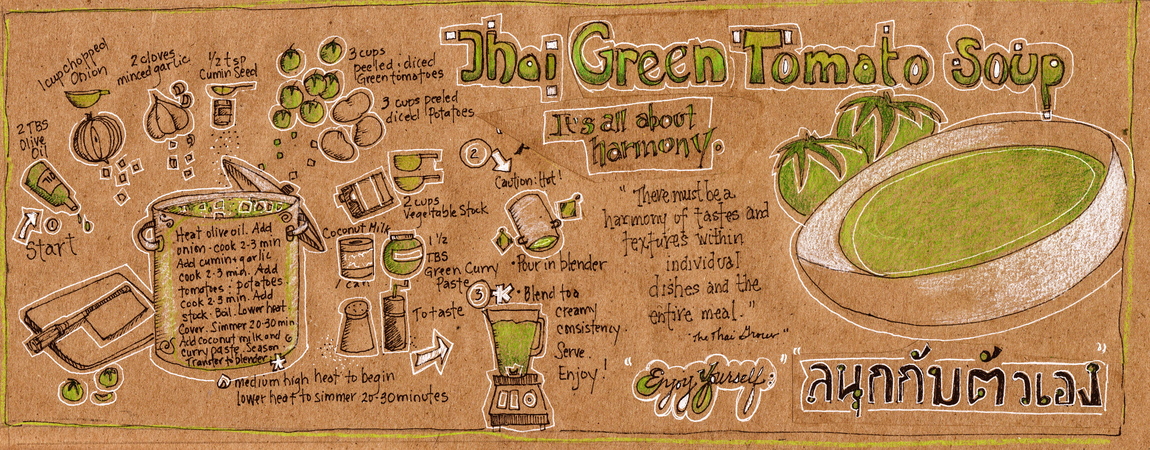 Thai Green Tomato Soup
It's all about
harmony.
1 cup chopped
Onion
2 cloves
minced garlic
1/2 tsp
Cumin Seed
3 cups
peeled + diced
Green tomatoes
3 cups peeled
diced Potatoes
2 TBS
Olive
Oil
1
Start
2 cups
Vegetable Stock
Coconut Milk
1 can
1 1/2
TBS
Green Curry
Paste
To taste
Heat olive oil. Add
onion - cook 2-3 min
Add cumin + garlic
cook 2-3 min. Add
tomatoes + potatoes
Cook 2-3 min. Add
stock. Boil. Lower heat
Cover. Simmer 20-30 min
Add coconut milk and
curry paste. Season
Transfer to blender
medium high heat to begin
lower heat to simmer 20-30 minutes
2
Caution: Hot!
• Pour in blender
3
• Blend to a
creamy
consistency.
Serve.
Enjoy!
"There must be a
harmony of tastes and
textures within
individual
dishes and the
entire meal."
"Enjoy Yourself:
ลนุกกับตัวเอง"